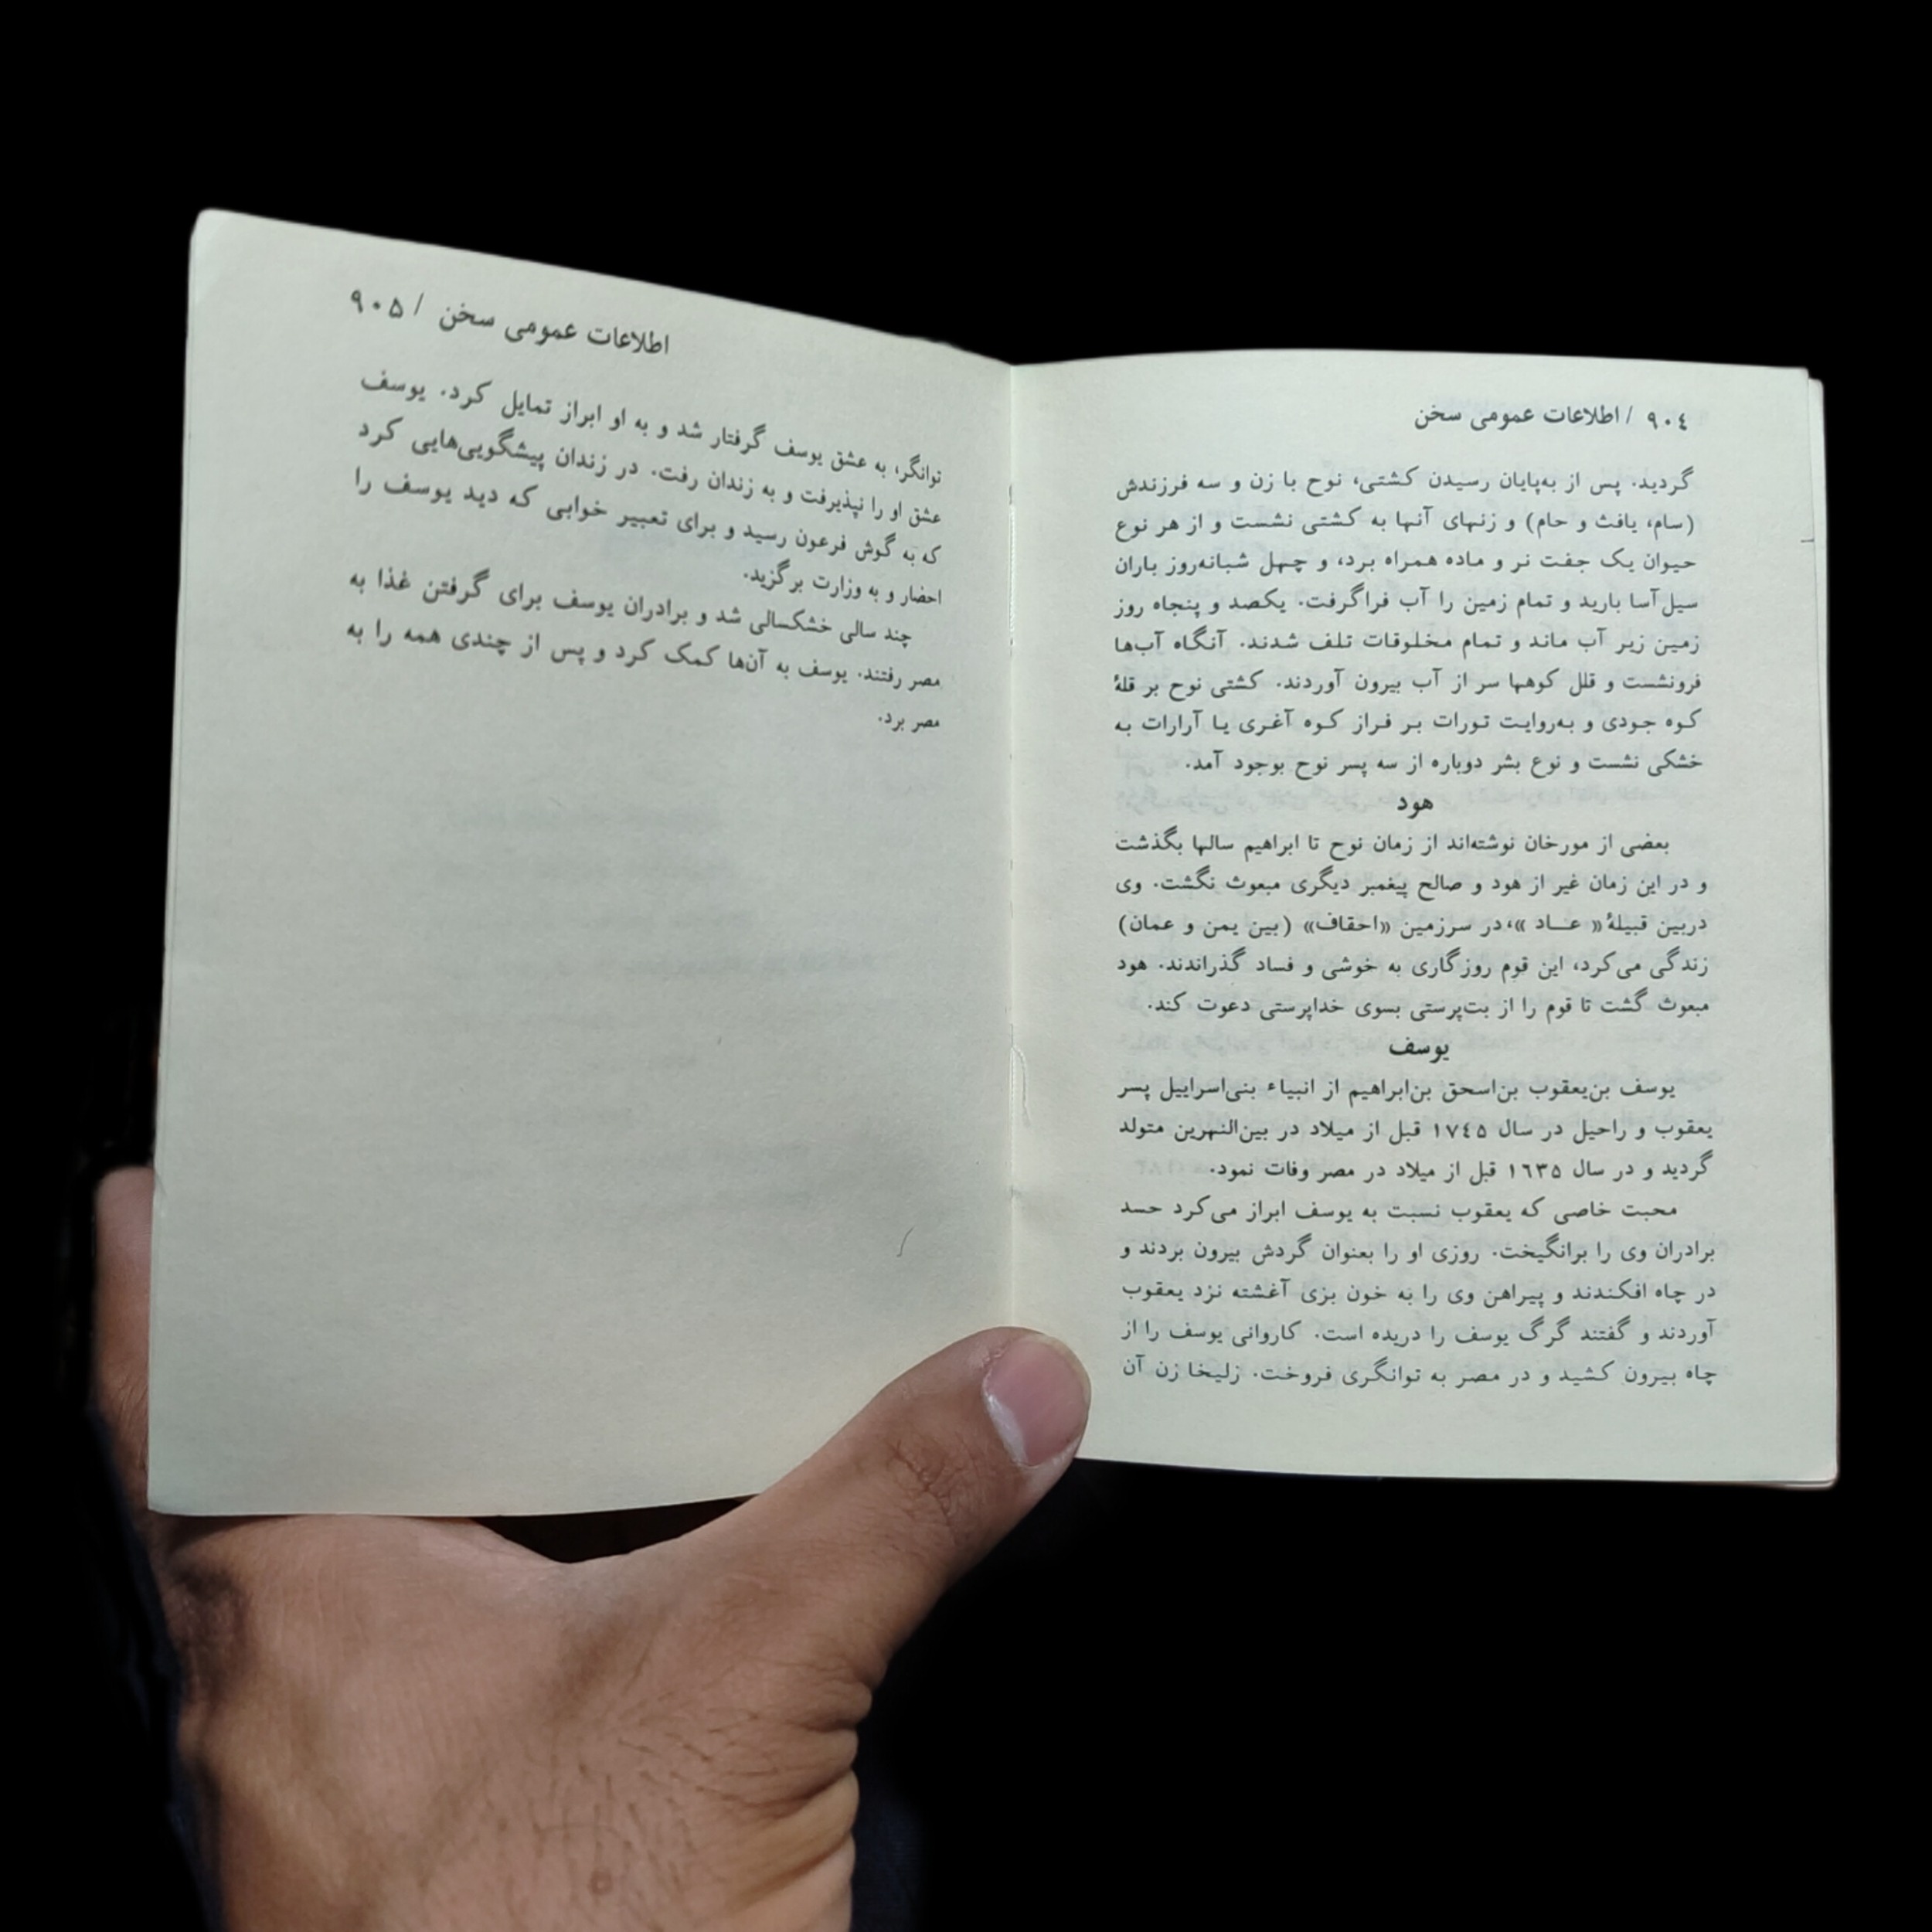 ٩٠٤ / اطلاعات عمومی سخن
گردید. پس از به‌پایان رسیدن کشتی، نوح با زن و سه فرزندش
(سام، یافث و حام) و زنهای آنها به کشتی نشست و از هر نوع
حیوان یک جفت نر و ماده همراه برد، و چهل شبانه‌روز باران
سیل‌آسا بارید و تمام زمین را آب فراگرفت. یکصد و پنجاه روز
زمین زیر آب ماند و تمام مخلوقات تلف شدند. آنگاه آب‌ها
فرونشست و قلل کوهها سر از آب بیرون آوردند. کشتی نوح بر قلهٔ
کوه جودی و به‌روایت تورات بر فراز کوه آغری یا آرارات به
خشکی نشست و نوع بشر دوباره از سه پسر نوح بوجود آمد.
هود
بعضی از مورخان نوشته‌اند از زمان نوح تا ابراهیم سالها بگذشت
و در این زمان غیر از هود و صالح پیغمبر دیگری مبعوث نگشت. وی
دربین قبیلهٔ « عــاد »، در سرزمین «احقاف» (بین یمن و عمان)
زندگی می‌کرد، این قوم روزگاری به خوشی و فساد گذراندند. هود
مبعوث گشت تا قوم را از بت‌پرستی بسوی خداپرستی دعوت کند.
یوسف
یوسف بن‌یعقوب بن‌اسحق بن‌ابراهیم از انبیاء بنی‌اسراییل پسر
یعقوب و راحیل در سال ١٧٤٥ قبل از میلاد در بین‌النهرین متولد
گردید و در سال ١٦٣٥ قبل از میلاد در مصر وفات نمود.
محبت خاصی که یعقوب نسبت به یوسف ابراز می‌کرد حسد
برادران وی را برانگیخت. روزی او را بعنوان گردش بیرون بردند و
در چاه افکندند و پیراهن وی را به خون بزی آغشته نزد یعقوب
آوردند و گفتند گرگ یوسف را دریده است. کاروانی یوسف را از
چاه بیرون کشید و در مصر به توانگری فروخت. زلیخا زن آن
اطلاعات عمومی سخن / ٩٠٥
توانگر، به عشق یوسف گرفتار شد و به او ابراز تمایل کرد. یوسف
عشق او را نپذیرفت و به زندان رفت. در زندان پیشگویی‌هایی کرد
که به گوش فرعون رسید و برای تعبیر خوابی که دید یوسف را
احضار و به وزارت برگزید.
چند سالی خشکسالی شد و برادران یوسف برای گرفتن غذا به
مصر رفتند. یوسف به آن‌ها کمک کرد و پس از چندی همه را به
مصر برد.